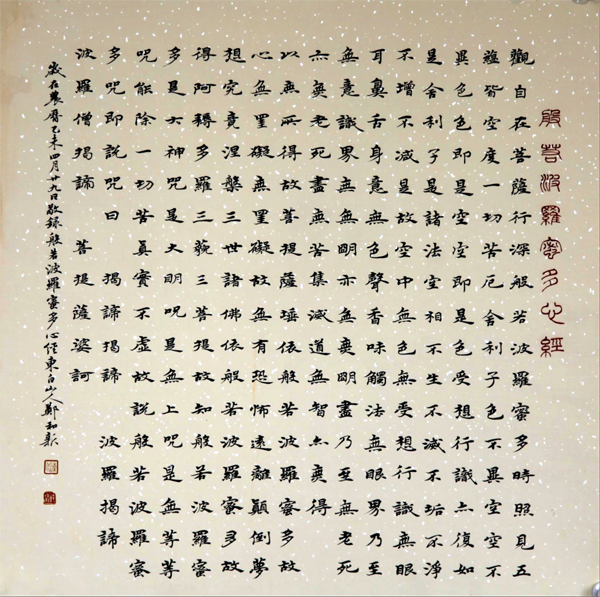 般若波羅蜜多心經
觀自在菩薩行深般若波羅蜜多時照見五
蘊皆空度一切苦厄舍利子色不異空空不
異色色即是空空即是色受想行識亦復如
是舍利子是諸法空相不生不滅不垢不淨
不增不減是故空中無色無受想行識無眼
耳鼻舌身意無色聲香味觸法無眼界乃至
無意識界無無明亦無無明盡乃至無老死
亦無老死盡無苦集滅道無智亦無得
以無所得故菩提薩埵依般若波羅蜜多故
心無罣礙無罣礙故無有恐怖遠離顛倒夢
想究竟涅槃三世諸佛依般若波羅蜜多故
得阿耨多羅三藐三菩提故知般若波羅蜜
多是大神呪是大明呪是無上呪是無等等
呪能除一切苦真實不虛故說般若波羅蜜
多呪即說呪曰 揭諦揭諦 波羅揭諦
波羅僧揭諦 菩提薩婆訶
歲在農曆乙未四月廿九日敬錄般若波羅蜜多心經東白山人鄭和